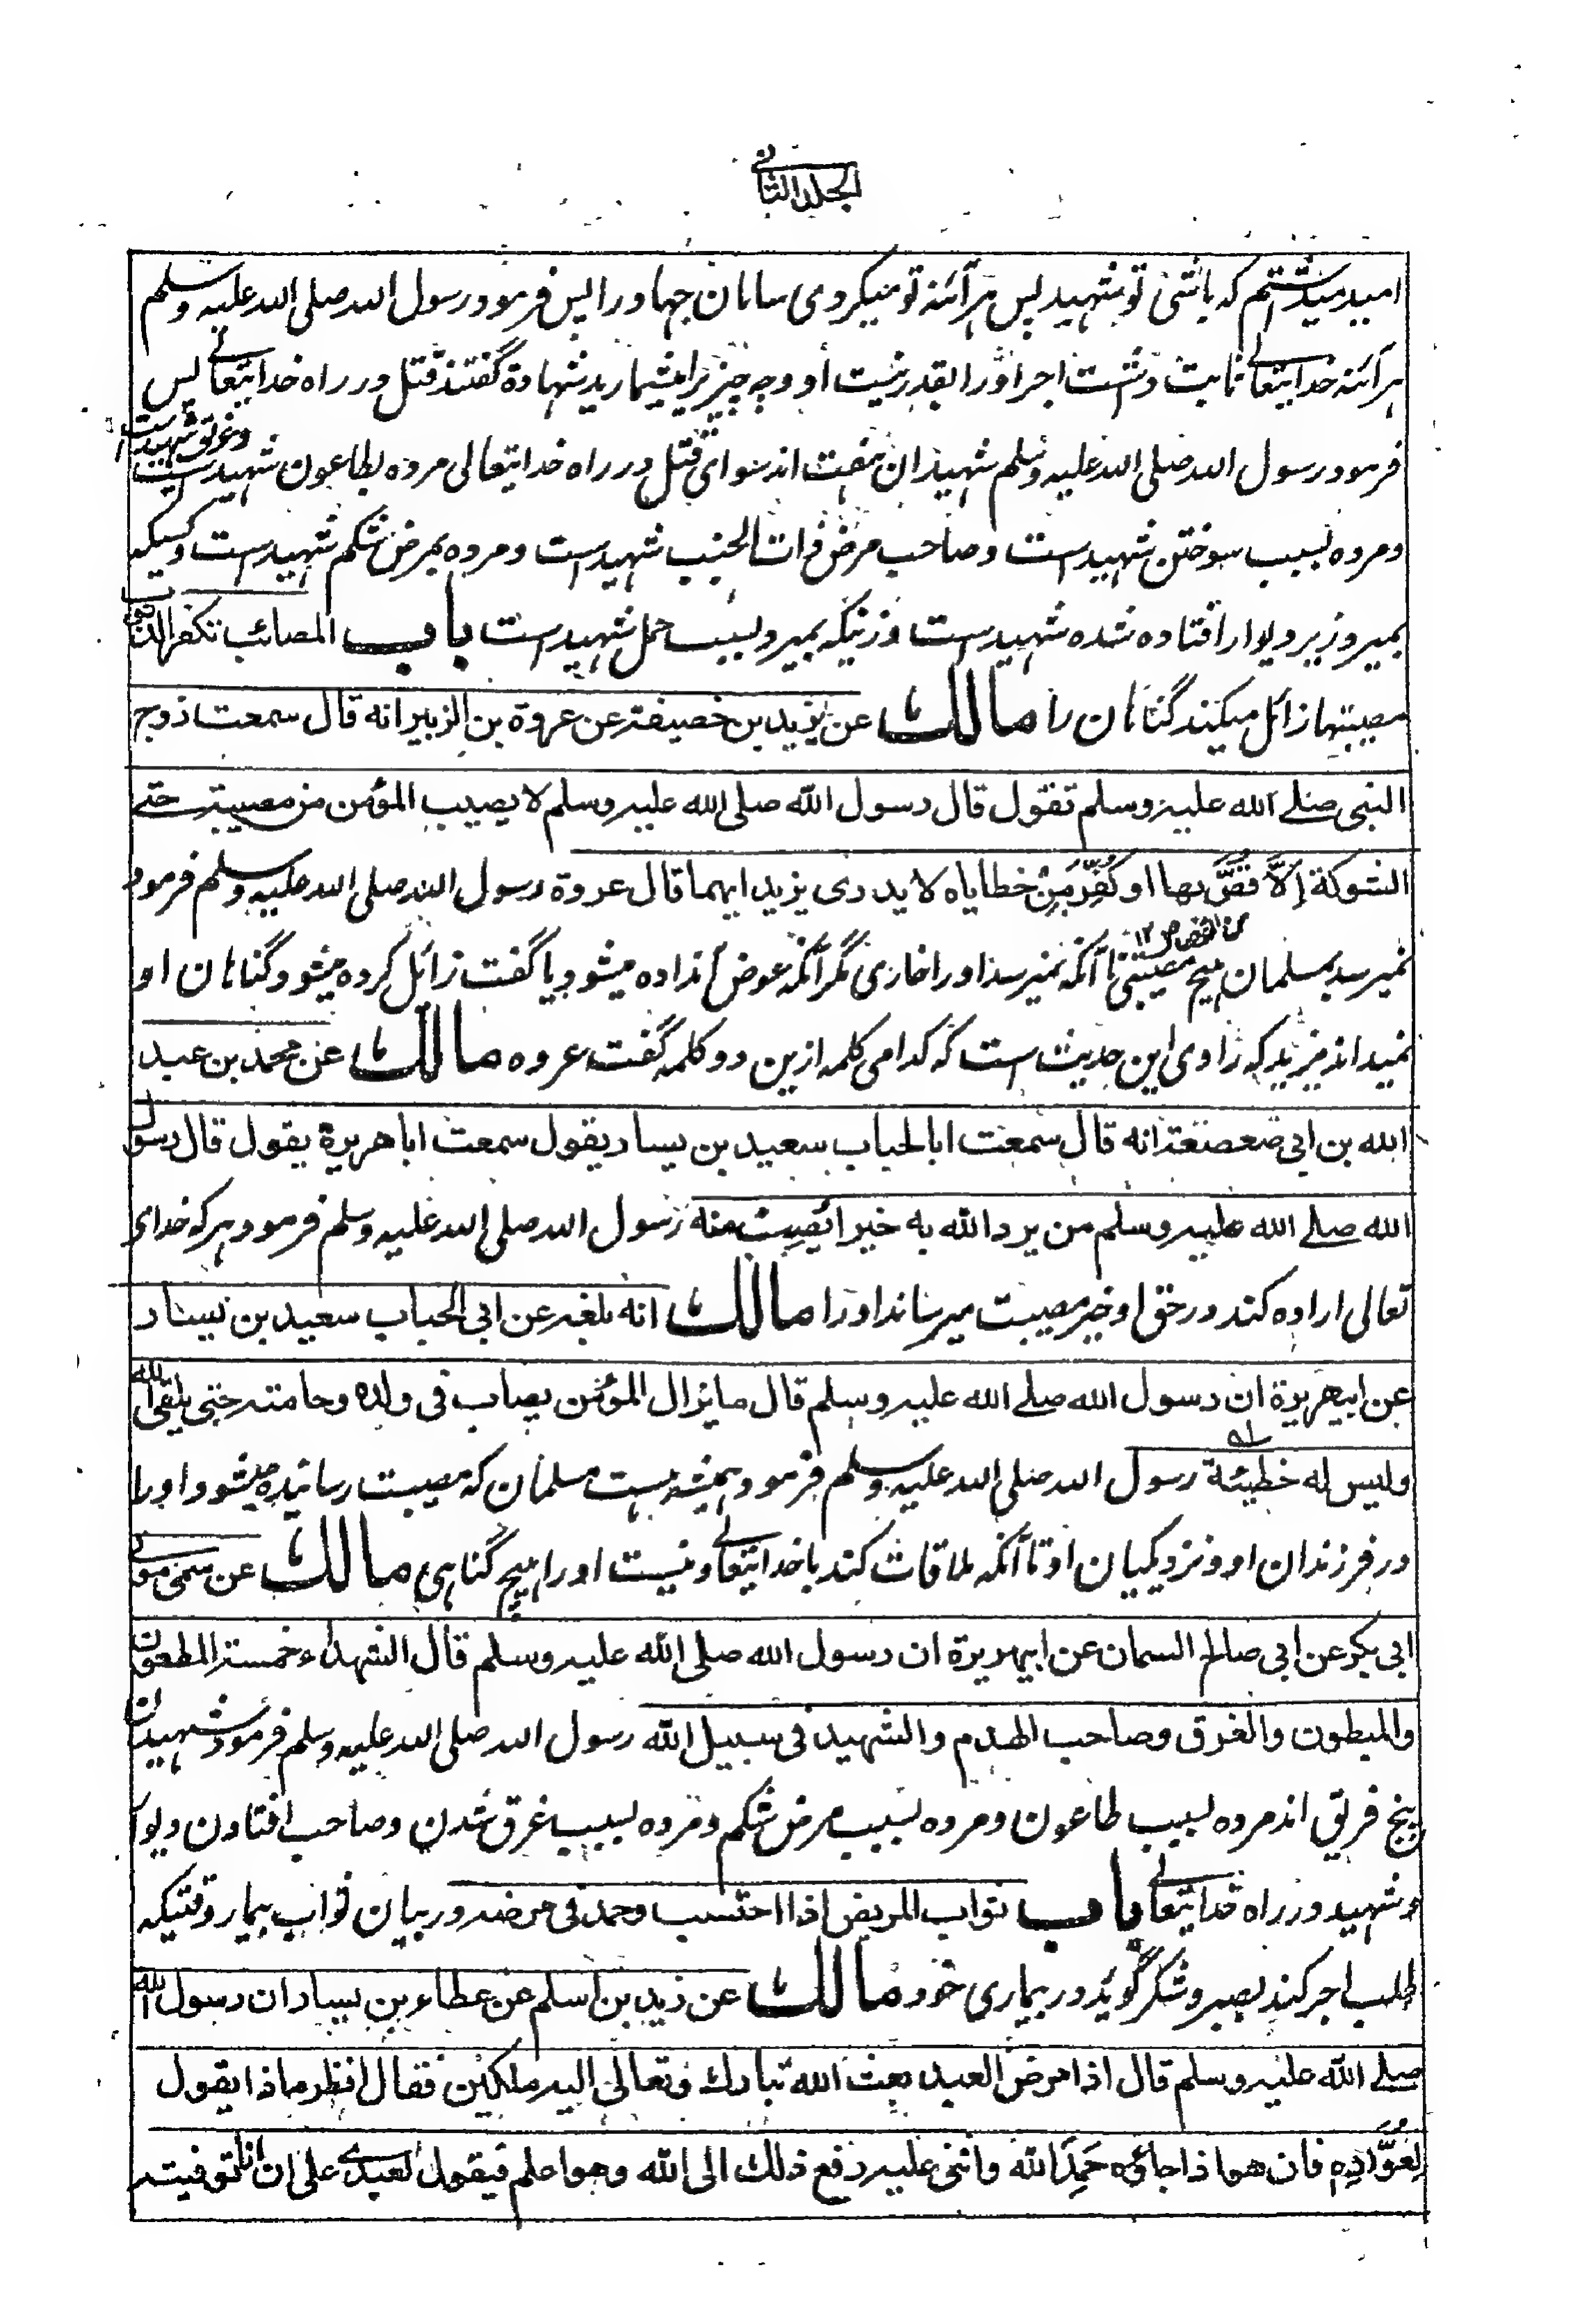 الجلد الثانی
امید میداشتم که باشی تو شهید پس هر آئنه تو میکردی سامان جهاد را پس فرمود رسول الله صلی الله علیه وسلم
هر آئنه خدایتعالے ثابت داشت اجر او را بقدر نیت او و چه چیز را میشمارید شهادة گفتند قتل در راه خدایتعالے پس
فرمود رسول الله صلی الله علیه وسلم شهیدان هفت اند سوای قتل در راه خدایتعالی مرده بطاعون شهید ست
وغرق شهید ست
و مرده بسبب سوختن شهید ست و صاحب مرض ذات الجنب شهید ست و مرده بمرض شکم شهید ست و کسیکه
بمیرد زیر دیوار افتاده شده شهید ست و زنیکه بمیرد بسبب حمل شهید ست باب المصائب تکفر الذنوب
مصیبتها زائل میکند گناهان را مالك عن یزید بن خصیفة عن عروة بن الزبیر انه قال سمعت زوج
النبی صلے الله علیه وسلم تقول قال رسول الله صلی الله علیه وسلم لا یصیب المؤمن من مصیبة حتے
الشوكة إلّا قُصَّ بها او كُفِّرَ مِن خطایاه لا یدری یزید ایهما قال عروة رسول الله صلی الله علیه وسلم فرمود
نمیرسد بمسلمان هیچ مصیبتی تا آنکه نمیرسد او را خاری مگر آنکه عوض آن داده میشود یا گفت زائل کرده میشود گناهان او
نمیداند یزید که راوی این حدیث ست که کدامی کلمه ازین دو کلمه گفت عروه مالك عن محمد بن عبد
الله بن ابی صعصعة انه قال سمعت ابا الحباب سعید بن یسار یقول سمعت ابا هریرة یقول قال رسول
الله صلے الله علیه وسلم من یرد الله به خیرا یُصِبْ منه رسول الله صلی الله علیه وسلم فرمود هر که خدای
تعالی اراده کند در حق او خیر مصیبت میرساند او را مالك انه بلغه عن ابی الحباب سعید بن یسار
عن ابیهریرة ان رسول الله صلے الله علیه وسلم قال ما یزال المؤمن یصاب فی ولده وحامته حتی یلقی الله
ولیس له خطیئة رسول الله صلی الله علیه وسلم فرمود همیشه هست مسلمان که مصیبت رسانیده میشود او را
در فرزندان او و نزدیکیان او تا آنکه ملاقات کند با خدایتعالے و نیست او را هیچ گناهی مالك عن سمی مولی
ابی بكر عن ابی صالح السمان عن ابیهریرة ان رسول الله صلی الله علیه وسلم قال الشهداء خمسة المطعون
والمبطون والغرق وصاحب الهدم والشهید فی سبیل الله رسول الله صلی الله علیه وسلم فرمود شهیدان
پنج فریق اند مرده بسبب طاعون و مرده بسبب مرض شکم و مرده بسبب غرق شدن و صاحب افتادن دیوار
و شهید در راه خدایتعالے باب ثواب المریض اذا احتسب وحمد فی مرضه در بیان ثواب بیمار وقتیکه
طلب اجر کند بصبر و شکر گوید در بیماری خود مالك عن زید بن اسلم عن عطاء بن یسار ان رسول الله
صلے الله علیه وسلم قال اذا مرض العبد بعث الله تبارك وتعالی الیه ملکین فقال انظر ماذا یقول
لِعُوَّادِهِ فان هو اذا جاؤه حَمِدَ الله واثنی علیه رفع ذلك الی الله وهو اعلم فیقول لعبدے علی ان انا توفیته